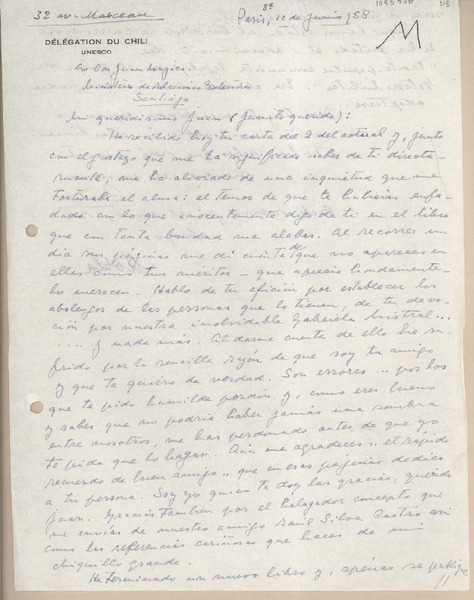 32 av. Marceau
8e
Paris, 10 de junio/58
DÉLÉGATION DU CHILI
UNESCO
Sr Don Juan Mujica
Ministerio de Relaciones Exteriores
Santiago
Mi queridísimo Juan (Juanito querido):
He recibido hoy tu carta del 2 del actual y, junto
con el gustazo que me ha significado saber de ti directa-
mente, me ha aliviado de una inquietud que me
torturaba el alma: el temor de que te hubieras enfa-
dado con lo que inocentemente digo de ti en el libro
que con tanta bondad me alabas. Al recorrer un
día sus páginas me di cuenta de que no apareces en
ellas como tus méritos – que aprecio hondamente –
lo merecen. Hablo de tu afición por establecer los
abolengos de las personas que lo tienen, de tu devo-
ción por nuestra inolvidable Gabriela Mistral...
.... y nada más. Al darme cuenta de ello he su-
frido por la sencilla razón de que soy tu amigo
y que te quiero de verdad. Son errores .. por los
que te pido humilde perdón y, como eres bueno
y sabes que no podría haber jamás una sombra
entre nosotros, me has perdonado antes de que yo
te pida que lo hagas. Aún me agradeces "el rápido
recuerdo de buen amigo" que en esas páginas dedico
a tu persona. Soy yo quien te doy las gracias, querido
Juan. Gracias también por el halagador concepto que
me envías de nuestro amigo Raúl Silva Castro así
como las referencias cariñosas que haces de mi
chiquillo grande.
He terminado un nuevo libro y, apenas se publique